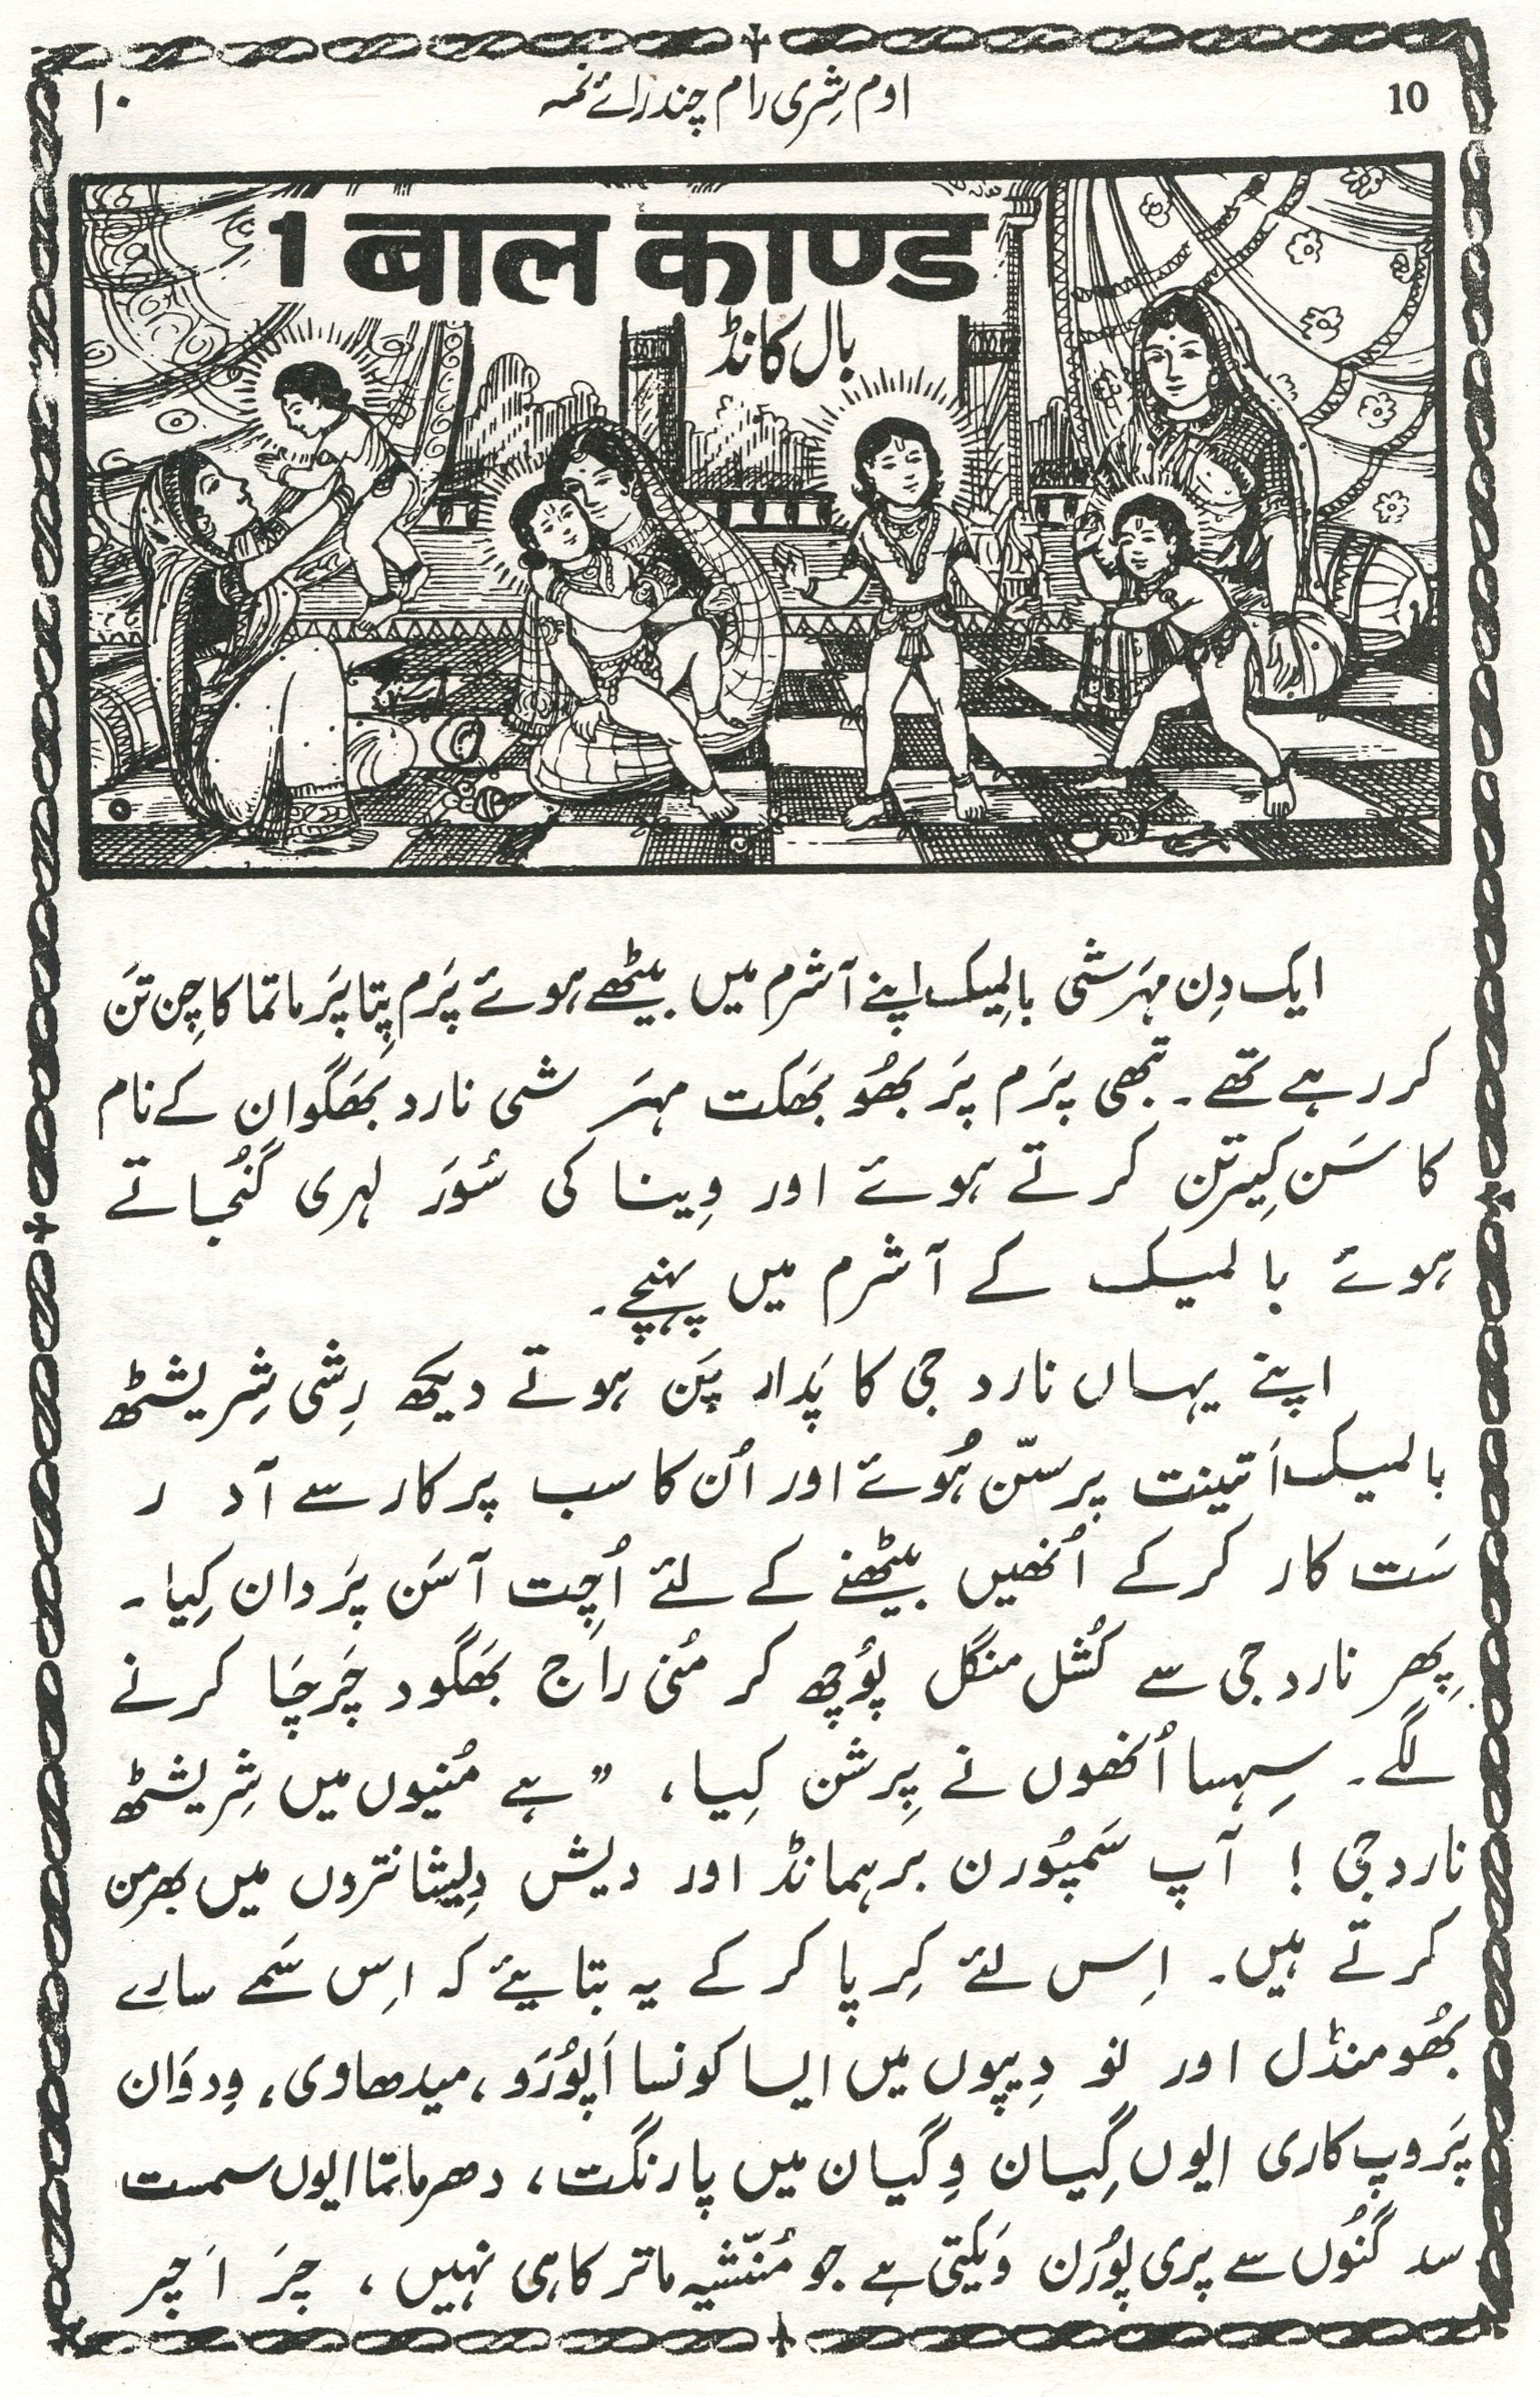 10 اوم شِری رام چندرائے نمہ ۱۰
1 बाल काण्ड
بال کانڈ
ایک دِن مہَرشی بالمِیک اپنے آشرم میں بیٹھے ہوئے پَرم پِتا پَرماتما کا چِن تَن
کر رہے تھے۔ تبھی پَرم پَربھُو بھَکت مہَر شی نارد بھَگوان کے نام
کا سَن کِیرتن کرتے ہوئے اور وِینا کی سُوَر لہری گُنجاتے
ہوئے بالمیک کے آشرم میں پہنچے۔
اپنے یہاں نارد جی کا پَدار پَن ہوتے دیکھ رِشی شِریشٹھ
بالمیک اَتینت پرسنّ ہُوئے اور اُن کا سب پرکار سے آد ر
سَت کار کرکے اُنھیں بیٹھنے کے لئے اُچِت آسَن پَردان کِیا۔
پِھر نارد جی سے کُشل منگل پوُچھ کر مُنی راج بھَگود چَرچَا کرنے
لگے۔ سہسا اُنھوں نے پِرشن کِیا، ”ہے مُنیوں میں شِریشٹھ
نارد جی ! آپ سَمپُورن برہمانڈ اور دیش دِیشانتروں میں بھرمن
کرتے ہیں۔ اِس لئے کِرپا کر کے یہ بتایئے کہ اِس سَمے سارے
بھُومنڈل اور نو دِیپوں میں ایسا کونسا اَپوُرَو، میدھاوی، وِدوَان
پَروپ کاری ایوں گیان وِگیان میں پارنگت، دھرماتما ایوں سمست
سد گُنوں سے پری پوُرن وَیکتی ہے جو مُنّشیہ ماتر کا ہی نہیں، چَر اَچر